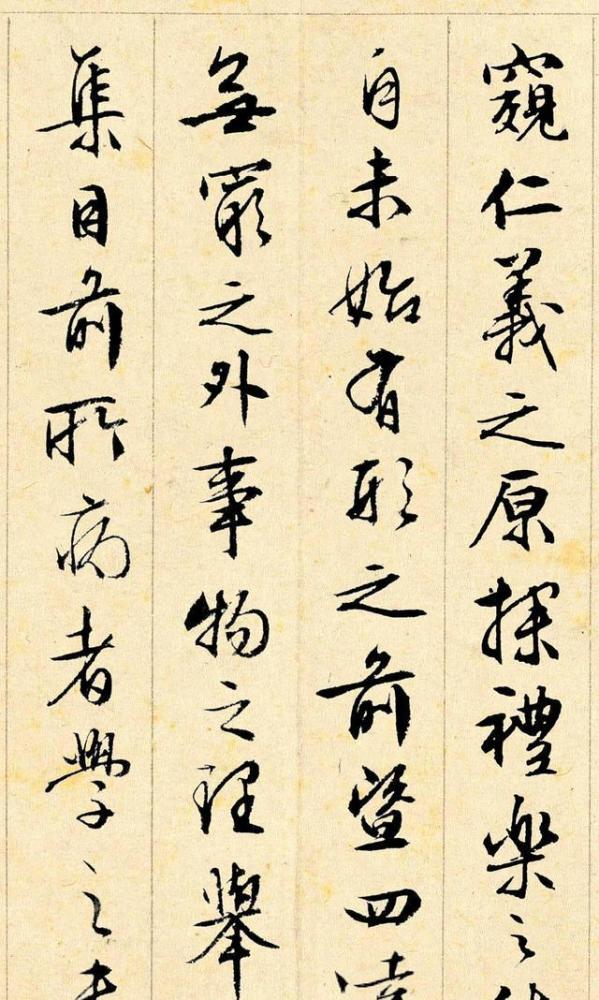 窺仁義之原探禮樂之
自未始有形之前暨四
無窮之外事物之理舉
集目前所病者學之未